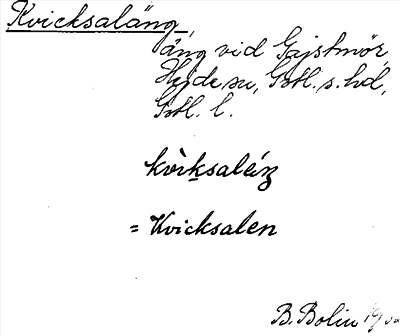 Kvicksaläng,
äng vid Gajstmör,
Hejde sn, Gotl. s. hd,
Gotl. l.
kvìksaléŋ
= Kvicksalen
B. Bolin